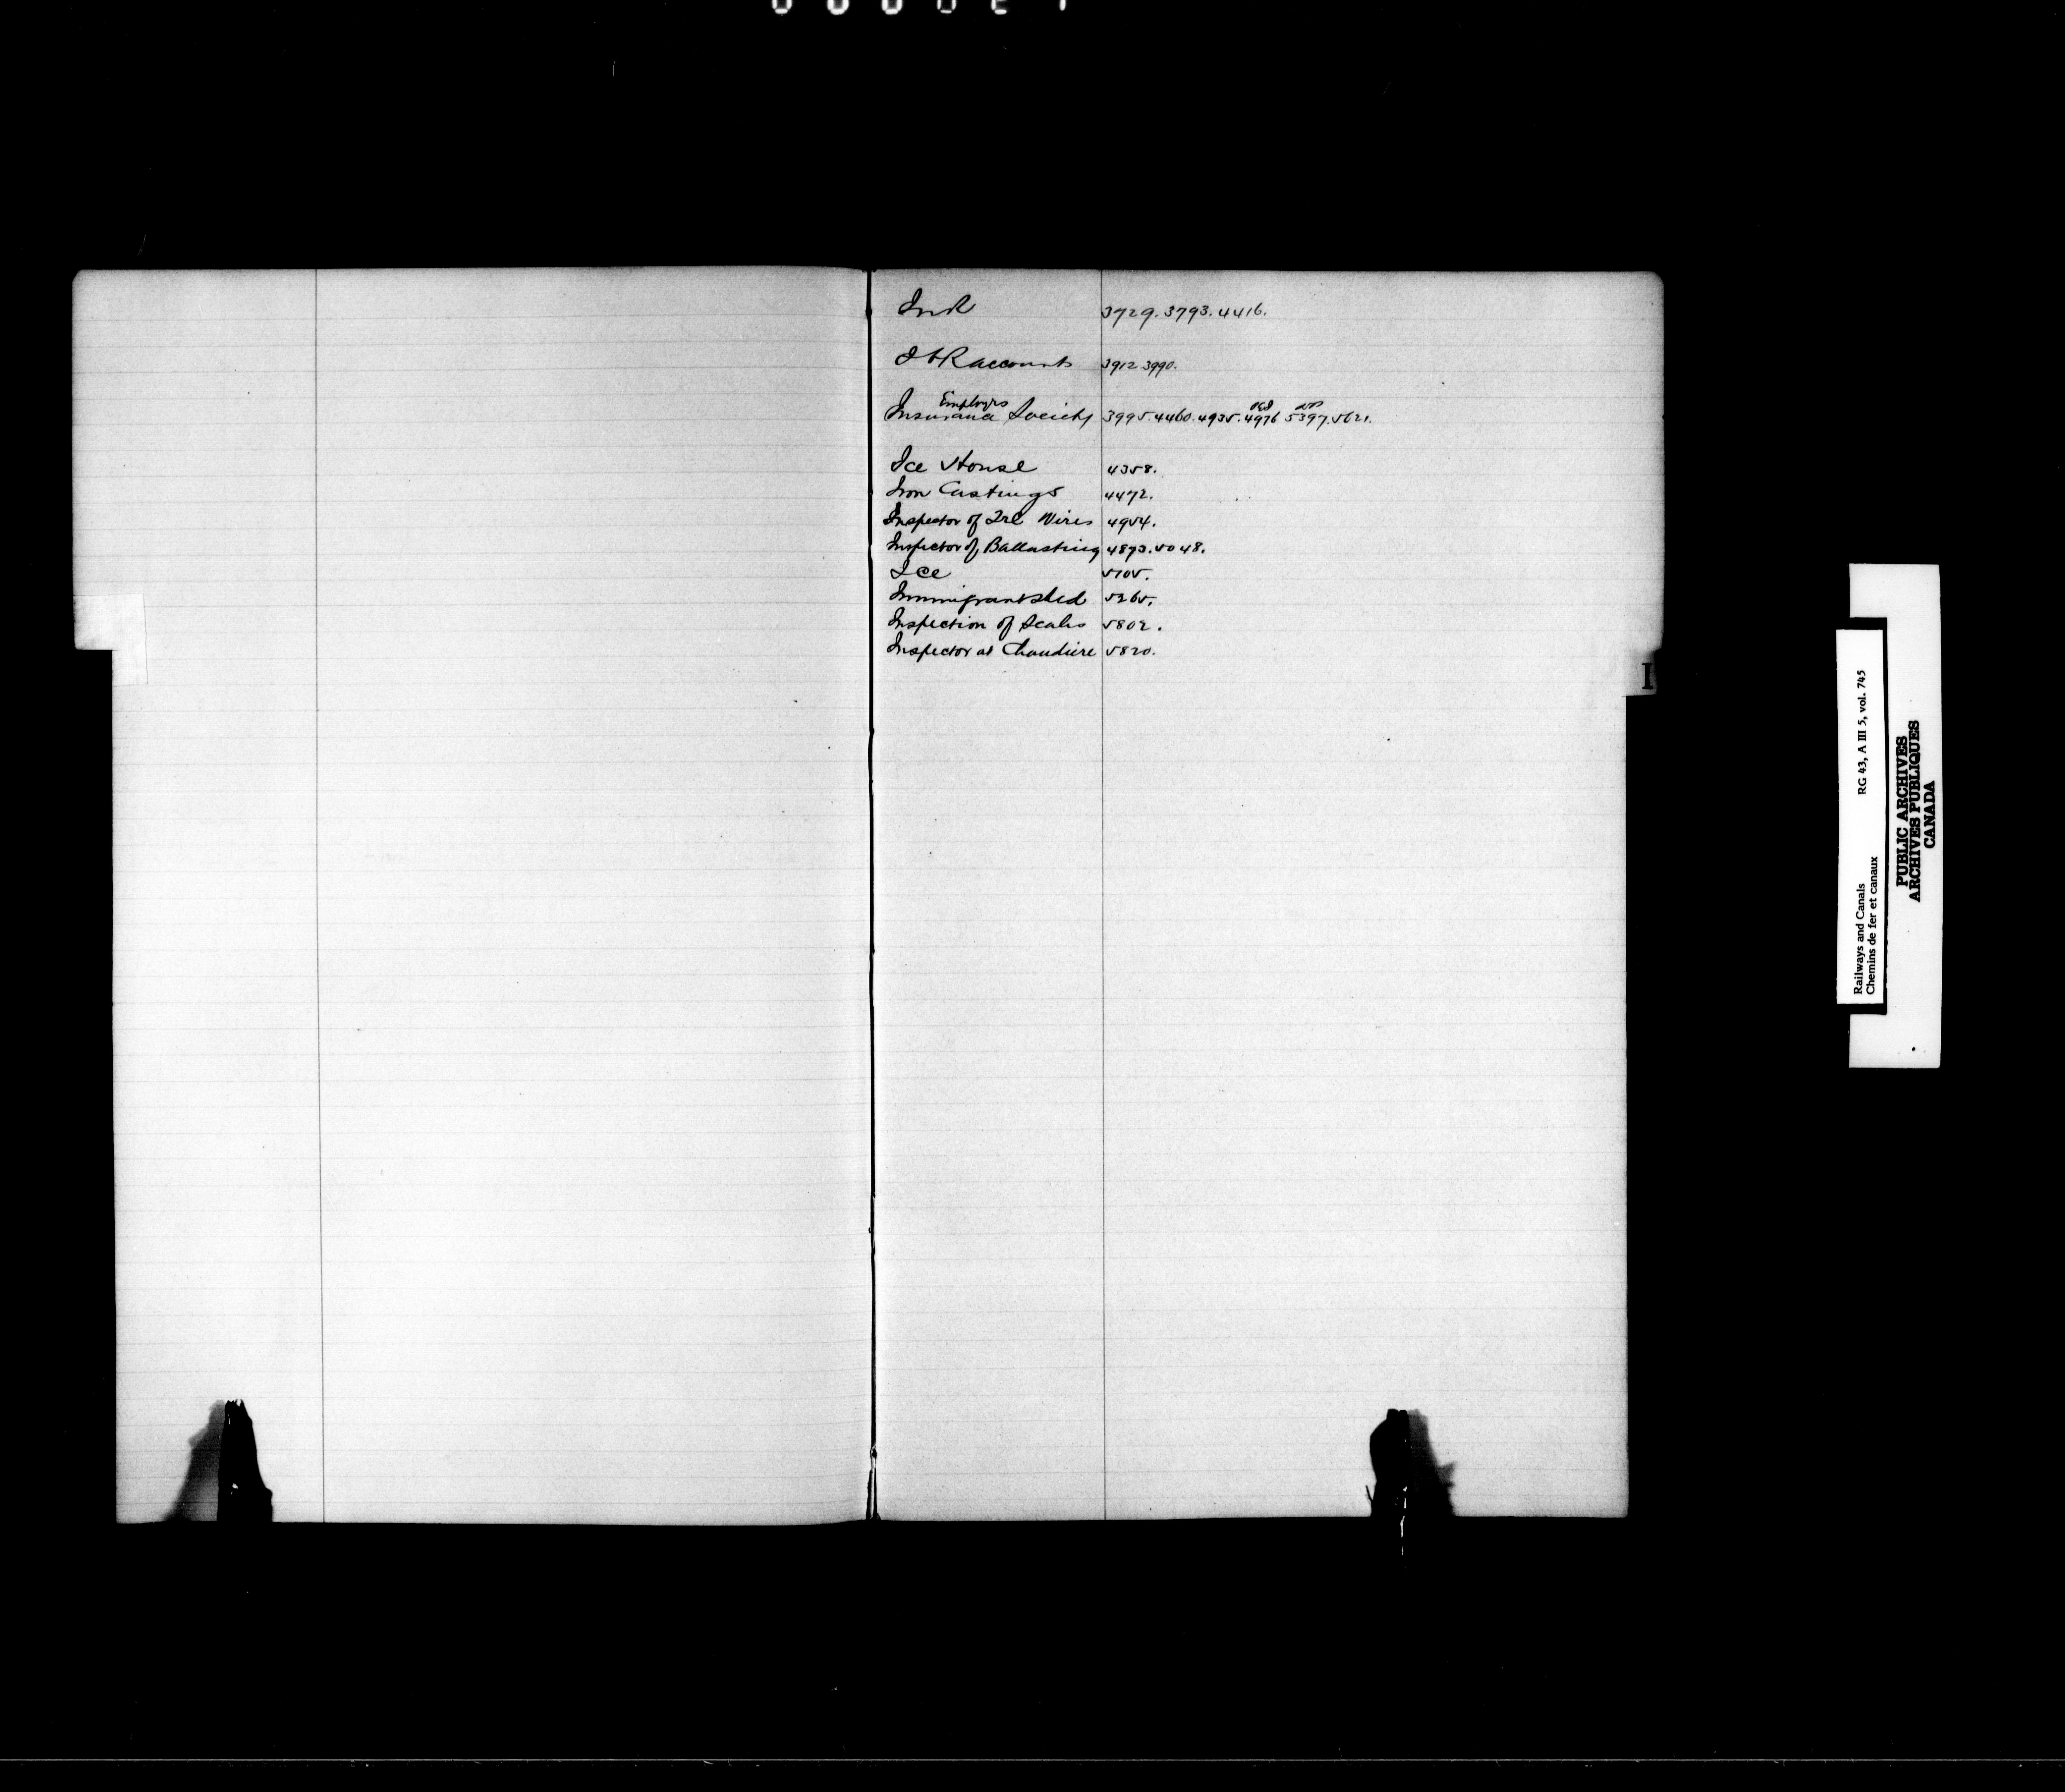 3729. 3793. 4416.
I C R accounts 3912 3990.
Employes
Insurance Society 3995. 4460. 4935. 4976 5397. 5621.
Ice House 4358.
Iron Castings 4472.
Inspector of Tel Wires 4954.
Inspector of Ballasting 4893. 5048.
Ice 5105.
Immigrant Shed 5265.
Inspection of Scales 5802.
Inspector at Chaudiere 5820.
I
Railways and Canals RG 43, A III 5, vol. 745
Chemins de fer et canaux
PUBLIC ARCHIVES
ARCHIVES PUBLIQUES
CANADA